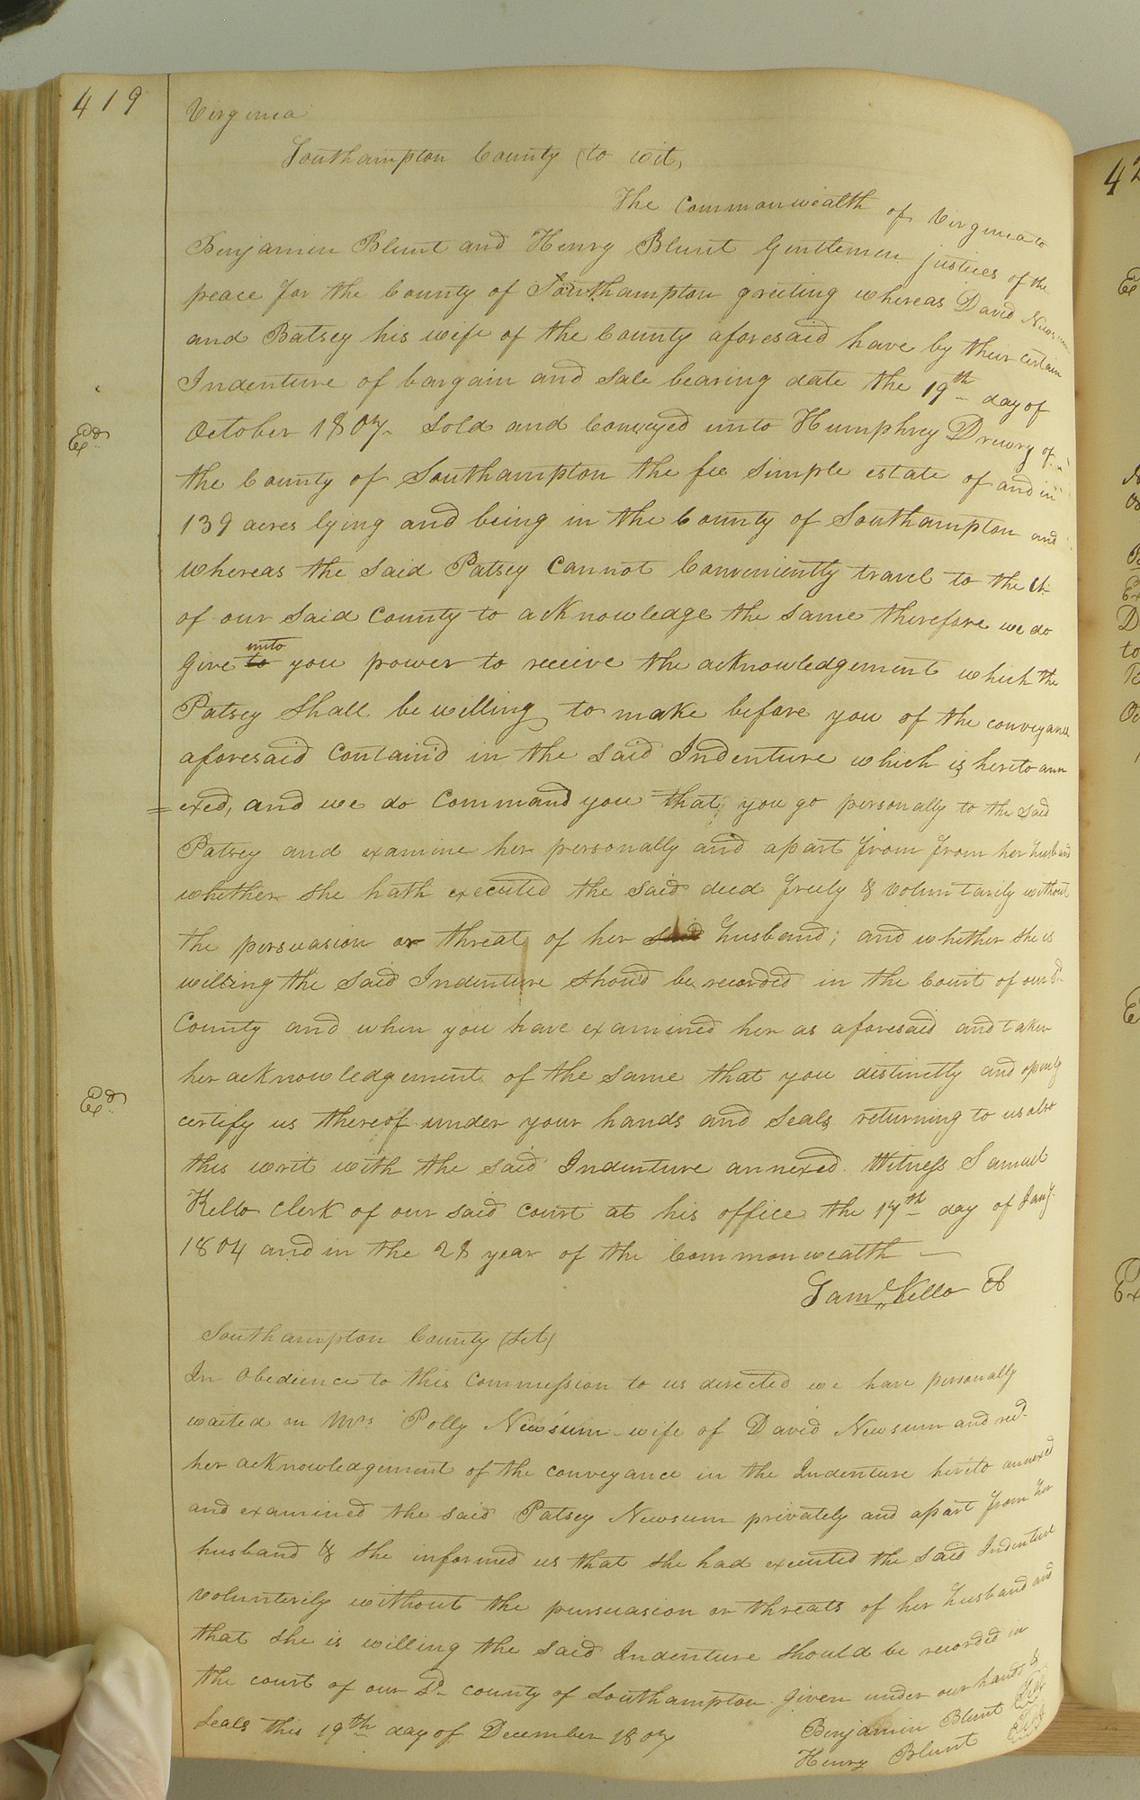 419
Virginia
Southampton County (to wit,
The Commonwealth of Virginia to
Benjamin Blunt and Henry Blunt Gentlemen justices of the
peace for the County of Southampton greeting whereas David
and Batsey his wife of the County aforesaid have by their certain
Indenture of bargain and Sale bearing date the 19th day of
October 1807. Sold and Conveyed unto Humphrey Drewry of
Exd
the County of Southampton the fee simple estate of and in
139 acres lying and being in the County of Southampton and
whereas the Said Patsey Cannot Conveniently travel to the Ct
of our Said County to acknowledge the Same therefore we do
Give to unto you power to receive the acknowledgement which the
Patsey Shall be willing to make before you of the conveyance
aforesaid Containd in the Said Indenture which is hereto ann
=exed, and we do Command you that you go personally to the Said
Patsey and examine her personally and apart from from her husband
whether she hath executed the Said deed freely & voluntarily without
the persuasion or threat of her said husband; and whether she is
willing the Said Indenture shoud be recorded in the Court of our Sd
County and when you have examined her as aforesaid and taken
her acknowledgement of the Same that you distinctly and openly
Exd
certify us thereof under your hands and Seals returning to us also
this writ with the Said Indenture annexed. Witness Samuel
Kello Clerk of our said Court at his office the 17th day of Jany.
1804 and in the 28 year of the Commonwealth —
Saml. Kello Ct
Southampton County (Sct)
In Obedience to this Commission to us directed we have personally
waited on Mrs Polly Newsum wife of David Newsum and recd.
her acknowledgement of the conveyance in the Indenture hereto annexed
and examined the said Patsey Newsum privately and apart from her
husband & she informed us that she had executed the Said Indenture
volunterily without the pursuasion or threats of her husband and
that she is willing the Said Indenture should be recorded in
the court of our Sd. county of Southampton. Given under our hands &
Seals this 19th day of December 1807
Benjamin Blunt
Henry Blunt
42